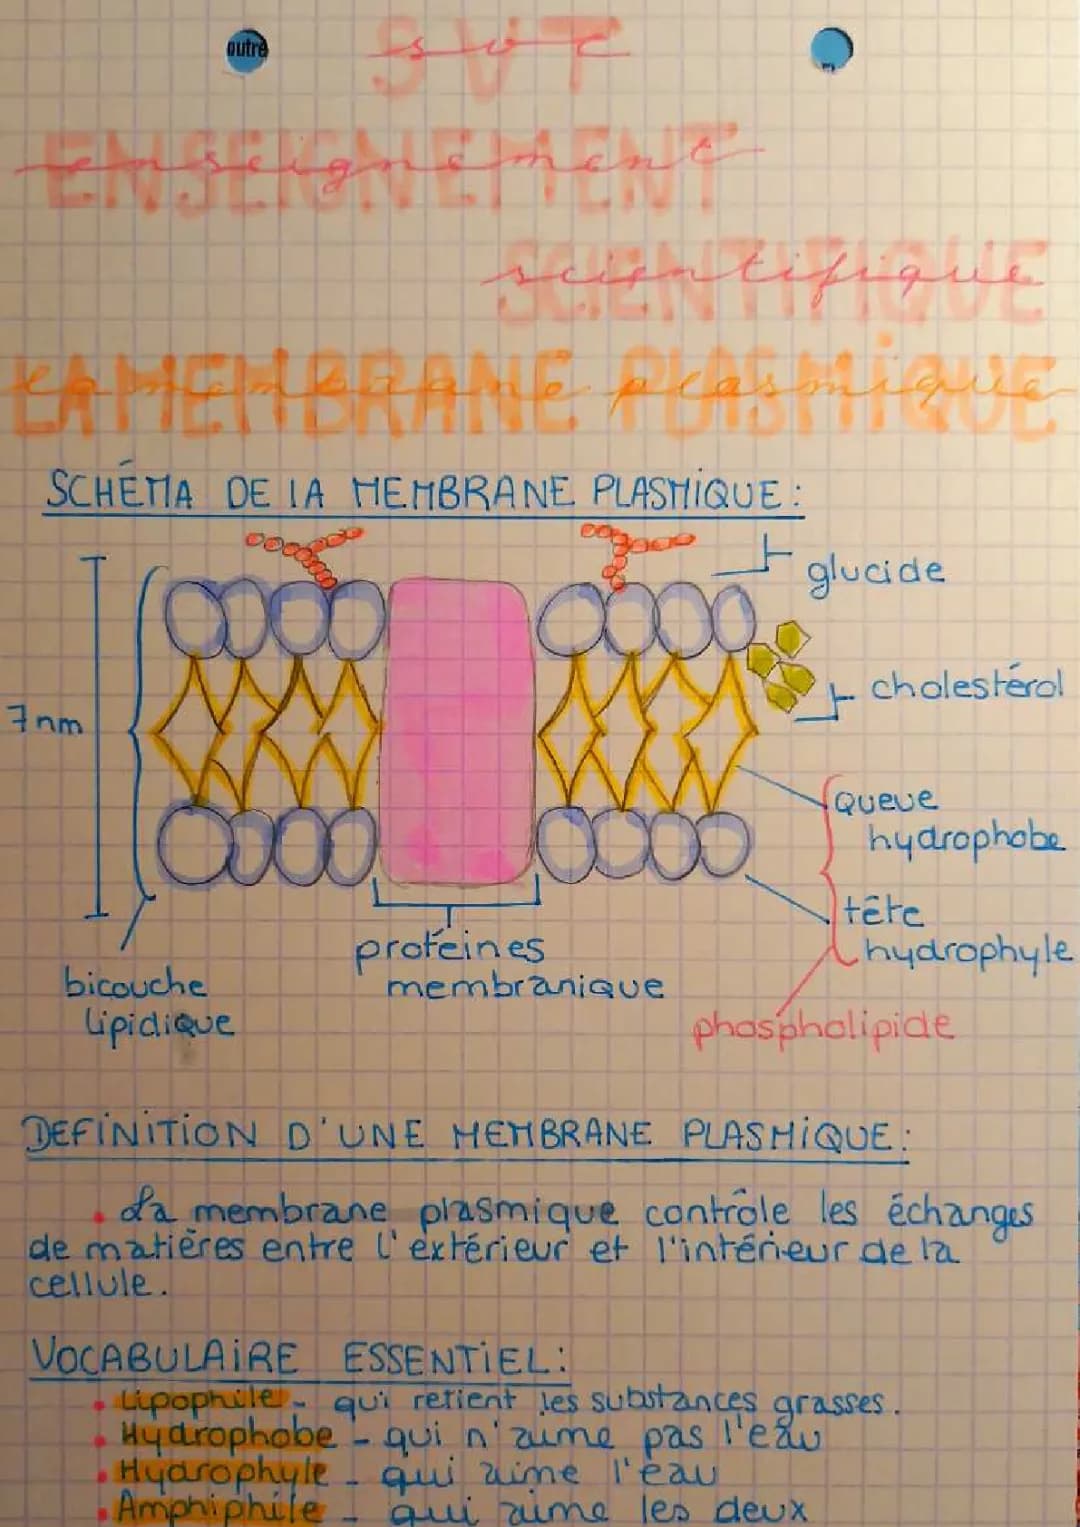 outre
SVT
svt
ENSEIGNEMENT
enseignement
SCIENTIFIQUE
scientifique
LA MEMBRANE PLASMIQUE
la membrane plasmique
SCHÉMA DE LA MEMBRANE PLASMIQUE :
glucide
cholestérol
7nm
Queue
hydrophobe
tête
hydrophyle
protéines
membranique
bicouche
lipidique
phospholipide
DEFINITION D'UNE MEMBRANE PLASMIQUE :
• La membrane plasmique contrôle les échanges
de matières entre l'extérieur et l'intérieur de la
cellule.
VOCABULAIRE ESSENTIEL :
• Lipophile - qui retient les substances grasses.
• Hydrophobe - qui n'aime pas l'eau
• Hydrophyle - qui aime l'eau
• Amphiphile - qui aime les deux